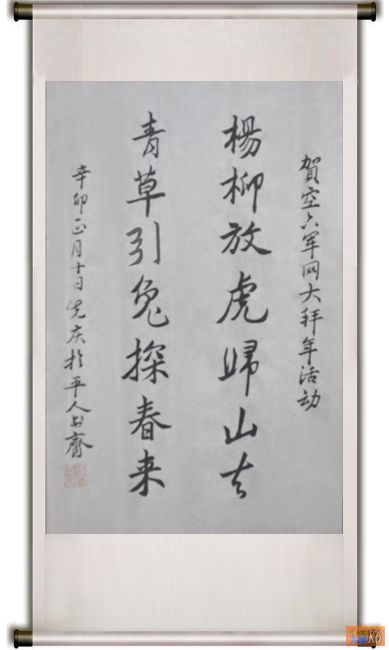 賀空六军网大拜年活动
楊柳放虎歸山去
青草引兔探春来
辛卯正月十日先庆於平人书齋